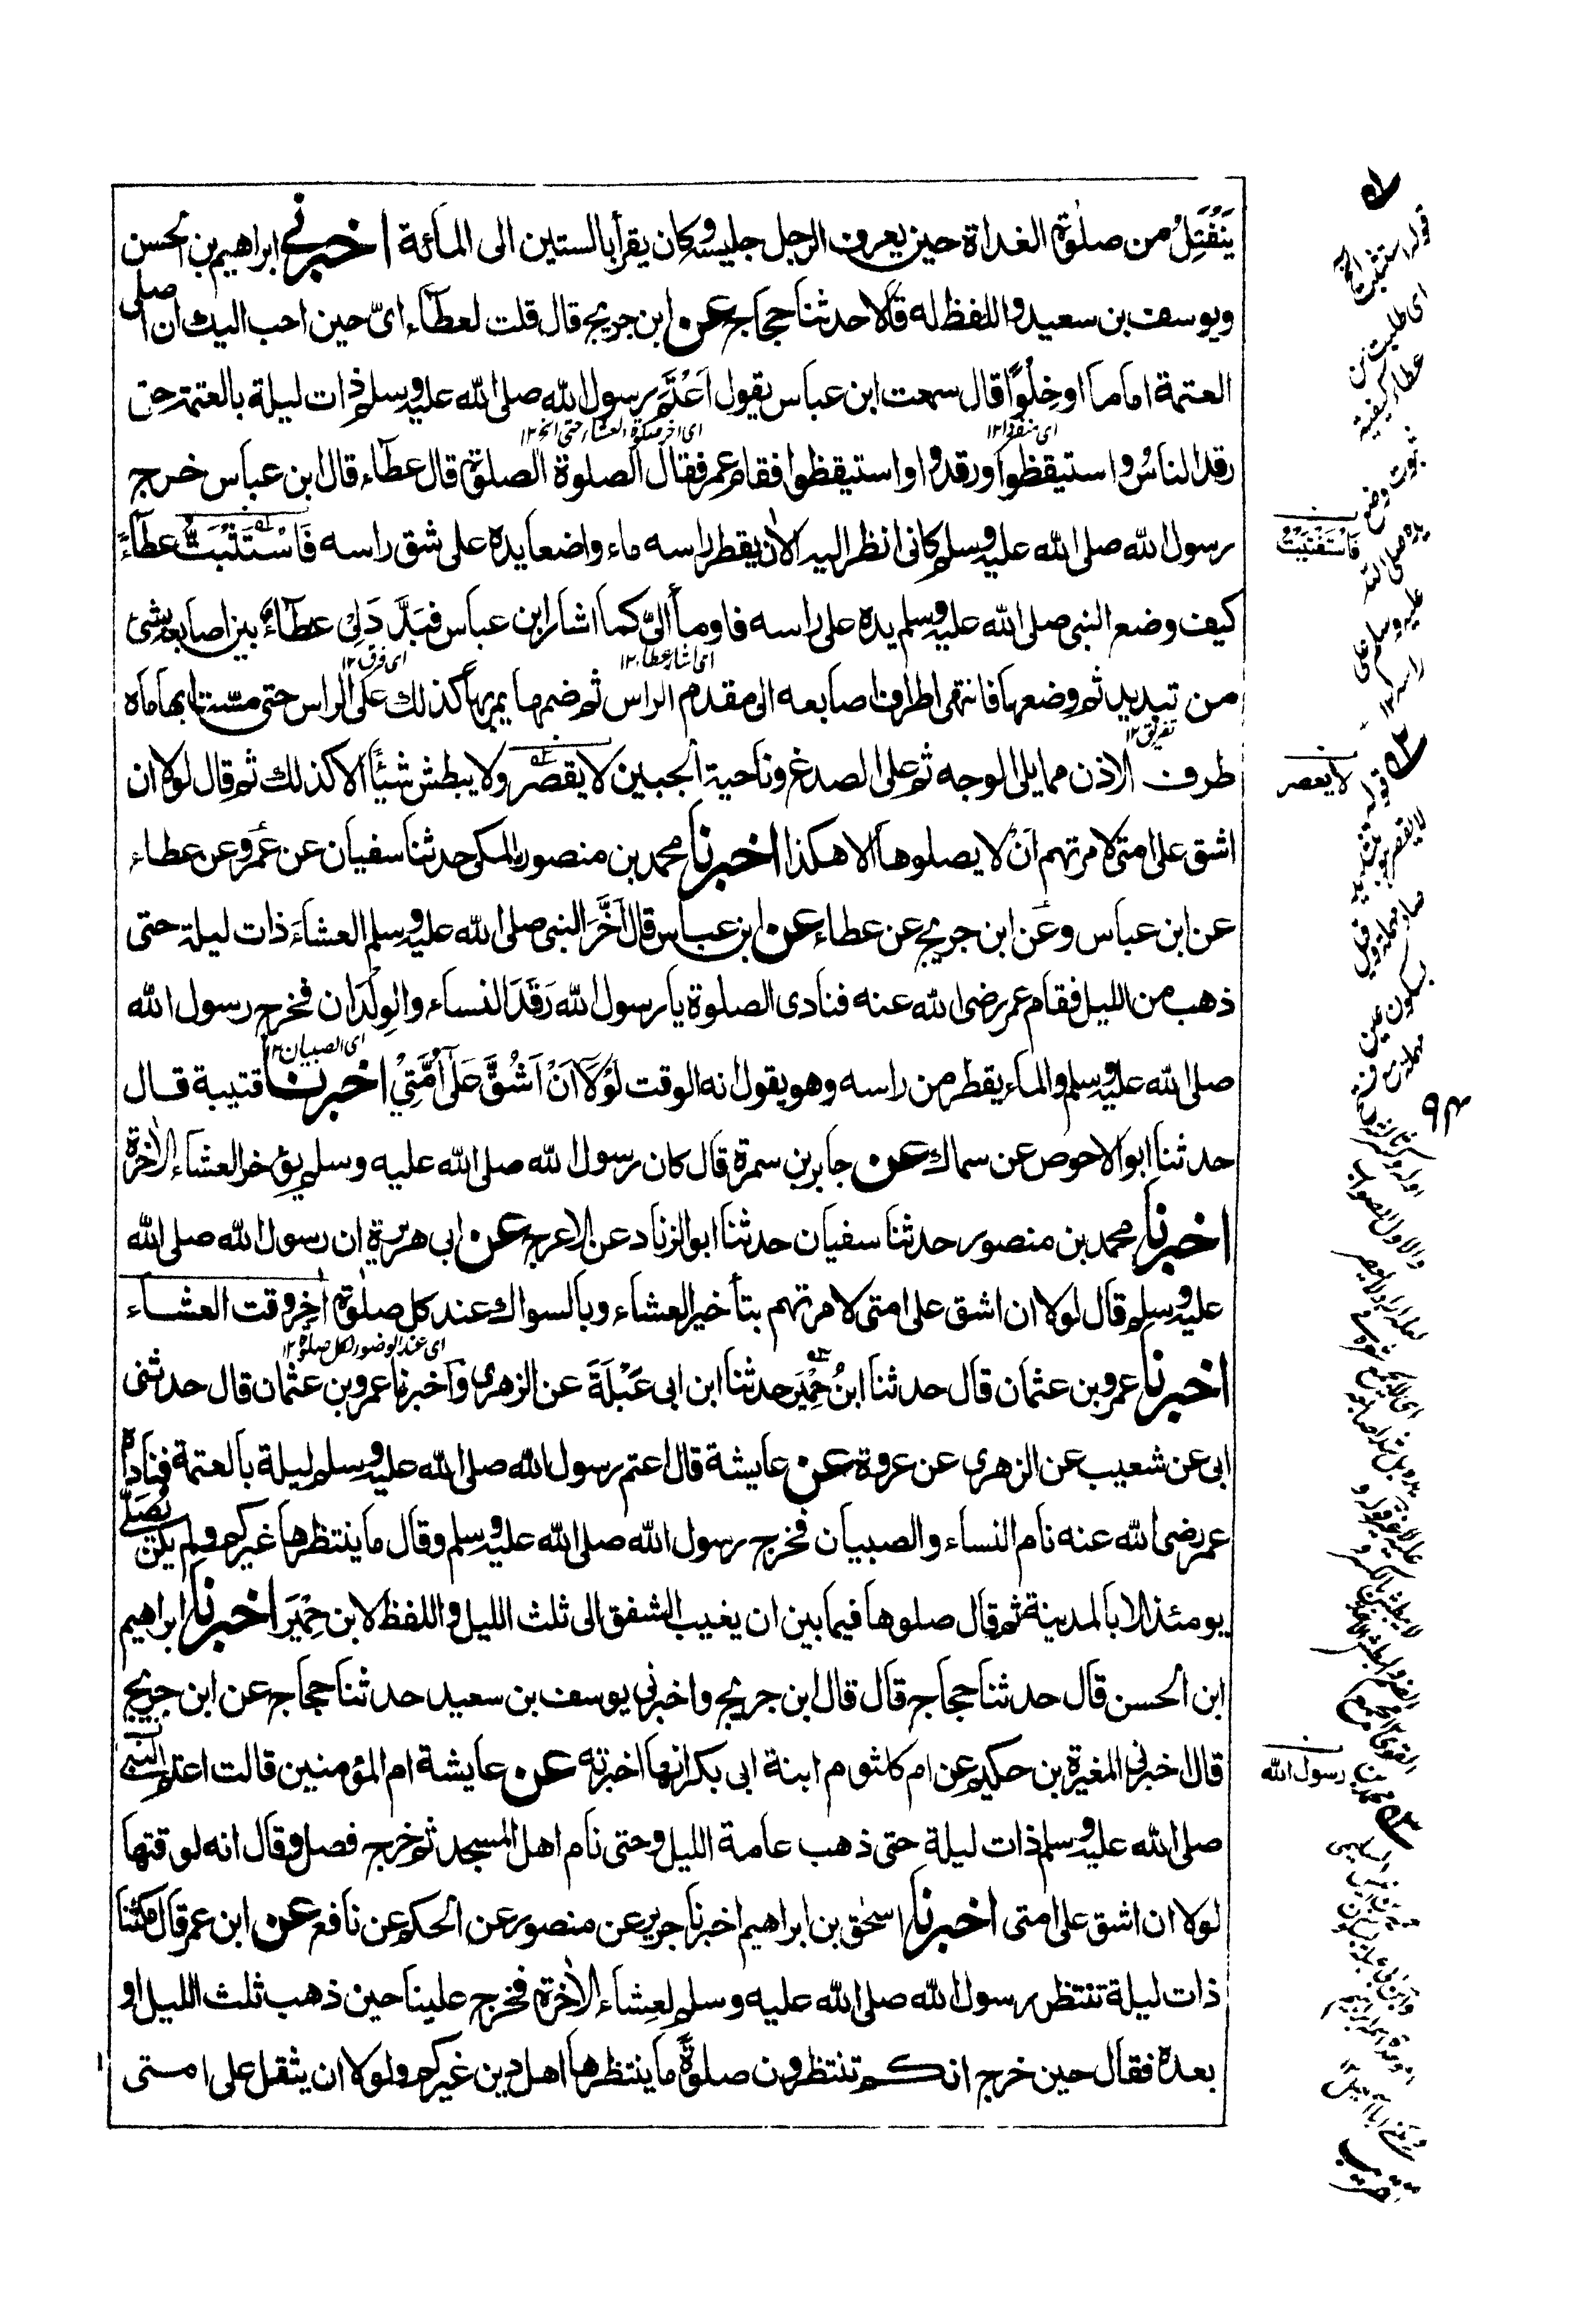 يَنْفَتِلُ من صلٰوة الغداة حين يعرف الرجل جليسه وكان يقرأ بالستين الى المأئة اخبرنى ابراهيم بن الحسن
ويوسف بن سعيد واللفظ له قالا حدثنا حجاج عن ابن جريج قال قلت لعطاء اىّ حين احب اليك ان اصلى
العتمة اماما او خِلْوًا قال سمعت ابن عباس يقول اَعْتَمَ رسول الله صلى الله عليه وسلم ذات ليلة بالعتمة حتى
اى منفردا ١٢ اى اخر صلوة العشاء حتى الخ ١٢
رقد الناسُ واستيقظوا ورقدوا واستيقظوا فقام عمر فقال الصلوة الصلوة قال عطاء قال ابن عباس خرج
رسول الله صلى الله عليه وسلم كانى انظر اليه الاٰن يقطر راسه ماء واضعا يده على شق راسه فَاسْتَثْبَتُّ عطاءً
كيف وضع النبى صلى الله عليه وسلم يده على راسه فاومأ الىّ كما اشار ابن عباس فبَدَّدَ لِىْ عطاءٌ بين اصابعه بشئ
اى اشار عطاء ١٢ اى فرق ١٢
من تبديد ثم وضعها فانتهى اطراف اصابعه الى مقدم الراس ثم ضمها يمر بها كذلك على الراس حتى مستا بهاماه
تفريق ١٢
طرف الاذن مما يلى الوجه ثم على الصدغ وناحية الجبين لا يقصر ولا يبطش شيئا الا كذلك ثم قال لولا ان
اشق على امتى لامرتهم اَنْ لا يصلوها الا هكذا اخبرنا محمد بن منصور المكى حدثنا سفيان عن عمرو عن عطاء
عن ابن عباس وعن ابن جريج عن عطاء عن ابن عباس قال اَخَّرَ النبى صلى الله عليه وسلم العشاءَ ذات ليلة حتى
ذهب من الليل فقام عمر رضى الله عنه فنادى الصلوة يا رسول الله رَقَدَ النساء والوِلْدَان فخرج رسول الله
اى الصبيان ١٢
صلى الله عليه وسلم والماء يقطر من راسه وهو يقول انه الوقت لَوْلَا اَنْ اَشُقَّ عَلٰى اُمَّتِىْ اخبرنا قتيبة قال
حدثنا ابو الاحوص عن سماك عن جابر بن سمرة قال كان رسول الله صلى الله عليه وسلم يؤخر العشاء الاٰخرة
اخبرنا محمد بن منصور حدثنا سفيان حدثنا ابو الزناد عن الاعرج عن ابى هريرة ان رسول الله صلى الله
عليه وسلم قال لولا ان اشق على امتى لامرتهم بتأخير العشاء وبالسواك عند كل صلٰوة اٰخِر وقت العشاء
اى عند الوضوء لكل صلوة ١٢
اخبرنا عمرو بن عثمان قال حدثنا ابنُ حِمْيَر حدثنا ابن ابى عَبْلَةَ عن الزهرى واخبرنا عمرو بن عثمان قال حدثنى
ابى عن شعيب عن الزهرى عن عروة عن عايشة قال اعتم رسول الله صلى الله عليه وسلم ليلة بالعتمة فناداه
عمر رضى الله عنه نام النساء والصبيان فخرج رسول الله صلى الله عليه وسلم وقال ما ينتظرها غيركم ولم يكن يُصَلّٰى
يومئذ الا بالمدينة ثم قال صلوها فيما بين ان يغيب الشفق الى ثلث الليل واللفظ لابن حِمْيَر اخبرنا ابراهيم
ابن الحسن قال حدثنا حجاج قال قال ابن جريج واخبرنى يوسف بن سعيد حدثنا حجاج عن ابن جريج
قال اخبرنى المغيرة بن حكيم عن ام كلثوم ابنة ابى بكر انها اخبرته عن عايشة ام المؤمنين قالت اعتم النبى
صلى الله عليه وسلم ذات ليلة حتى ذهب عامة الليل وحتى نام اهل المسجد ثم خرج فصلى وقال انه لوقتها
لولا ان اشق على امتى اخبرنا اسحٰق بن ابراهيم اخبرنا جرير عن منصور عن الحكم عن نافع عن ابن عمر قال مكثنا
ذات ليلة ننتظر رسول الله صلى الله عليه وسلم لعشاء الاٰخرة فخرج علينا حين ذهب ثلث الليل او
بعده فقال حين خرج انكم تنتظرون صلوةً ما ينتظرها اهل دين غيركم ولولا ان يثقل على امتى
قوله استثبت الخ
اى طلبت من
عطاء كيفية
ثبوت وضع
يده صلى الله
عليه وسلم على
راسه ١٢
فَاسْتَفْتَيْتُ
لا يعصر
٩٣
رسول الله